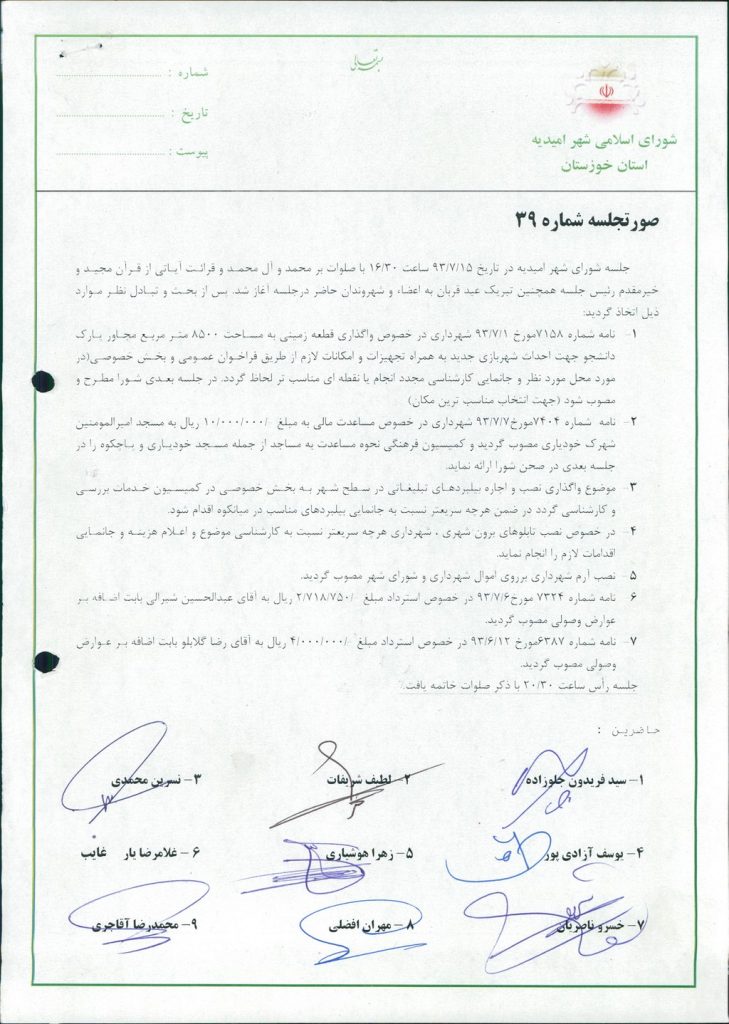 بسمه تعالی
شماره :
تاریخ :
پیوست :
شورای اسلامی شهر امیدیه
استان خوزستان
صورتجلسه شماره ۳۹
جلسه شورای شهر امیدیه در تاریخ ۹۳/۷/۱۵ ساعت ۱۶/۳۰ با صلوات بر محمد و آل محمد و قرائت آیاتی از قرآن مجید و
خیرمقدم رئیس جلسه همچنین تبریک عید قربان به اعضاء و شهروندان حاضر درجلسه آغاز شد. پس از بحث و تبادل نظر موارد
ذیل اتخاذ گردید:
۱- نامه شماره ۷۱۵۸مورخ ۹۳/۷/۱ شهرداری در خصوص واگذاری قطعه زمینی به مساحت ۸۵۰۰ متر مربع مجاور پارک
دانشجو جهت احداث شهربازی جدید به همراه تجهیزات و امکانات لازم از طریق فراخوان عمومی و بخش خصوصی(در
مورد محل مورد نظر و جانمایی کارشناسی مجدد انجام یا نقطه ای مناسب تر لحاظ گردد. در جلسه بعدی شورا مطرح و
مصوب شود (جهت انتخاب مناسب ترین مکان)
۲- نامه شماره ۷۴۰۴مورخ۹۳/۷/۷ شهرداری در خصوص مساعدت مالی به مبلغ ۱۰/۰۰۰/۰۰۰/- ریال به مسجد امیرالمومنین
شهرک خودیاری مصوب گردید و کمیسیون فرهنگی نحوه مساعدت به مساجد از جمله مسجد خودیاری و باجکوه را در
جلسه بعدی در صحن شورا ارائه نماید.
۳- موضوع واگذاری نصب و اجاره بیلبردهای تبلیغاتی در سطح شهر به بخش خصوصی در کمیسیون خدمات بررسی
و کارشناسی گردد در ضمن هرچه سریعتر نسبت به جانمایی بیلبردهای مناسب در میانکوه اقدام شود.
۴- در خصوص نصب تابلوهای برون شهری ، شهرداری هرچه سریعتر نسبت به کارشناسی موضوع و اعلام هزینه و جانمایی
اقدامات لازم را انجام نماید.
۵- نصب آرم شهرداری برروی اموال شهرداری و شورای شهر مصوب گردید.
۶- نامه شماره ۷۳۲۴ مورخ۹۳/۷/۶ در خصوص استرداد مبلغ ۲/۷۱۸/۷۵۰/- ریال به آقای عبدالحسین شیرالی بابت اضافه بر
عوارض وصولی مصوب گردید.
۷- نامه شماره ۶۳۸۷مورخ ۹۳/۶/۱۲ در خصوص استرداد مبلغ ۴/۰۰۰/۰۰۰/- ریال به آقای رضا گلابلو بابت اضافه بر عوارض
وصولی مصوب گردید.
جلسه رأس ساعت ۲۰/۳۰ با ذکر صلوات خاتمه یافت.
حاضرین :
۱- سید فریدون جلوزاده ۲- لطیف شریفات ۳- نسرین محمدی
۴- یوسف آزادی پور ۵- زهرا هوشیاری ۶- غلامرضا یار غایب
۷- خسرو ناصریان ۸- مهران افضلی ۹- محمدرضا آقاجری